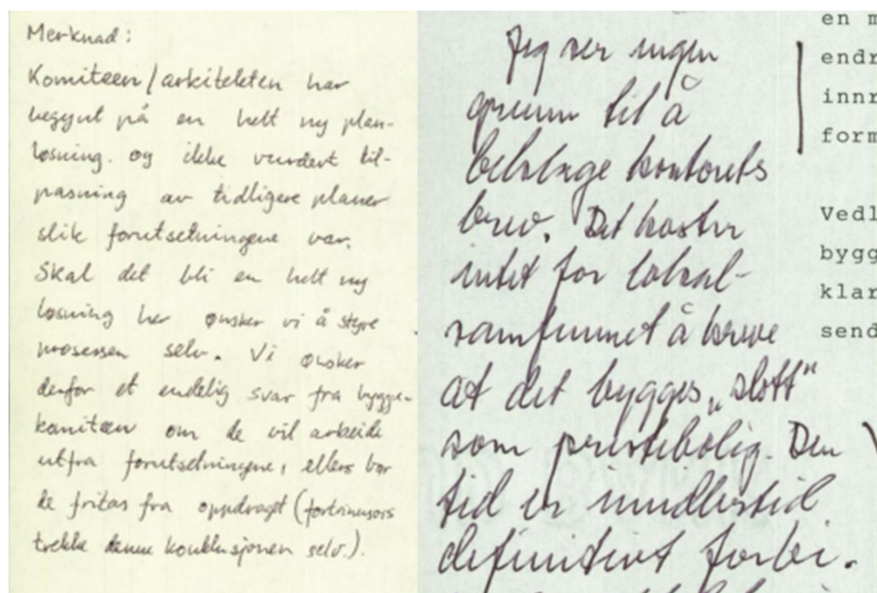 Merknad:
Komiteen/arkitekten har
begynt på en helt ny plan-
løsning og ikke vurdert til-
pasning av tidligere planer
slik forutsetningene var.
Skal det bli en helt ny
løsning her ønsker vi å styre
prosessen selv. Vi ønsker
derfor et endelig svar fra bygge-
komiteen om de vil arbeide
utfra forutsetningene, ellers bør
de fritas fra oppdraget (fortrinnsvis
trekke denne konklusjonen selv.).
Jeg ser ingen
grunn til å
beklage kontorets
brev. Det koster
intet for lokal-
samfunnet å kreve
at det bygges „slott"
som prestebolig. Den
tid er imidlertid
definitivt forbi.
en m
endr
innr
form
Vedl
bygg
klar
send